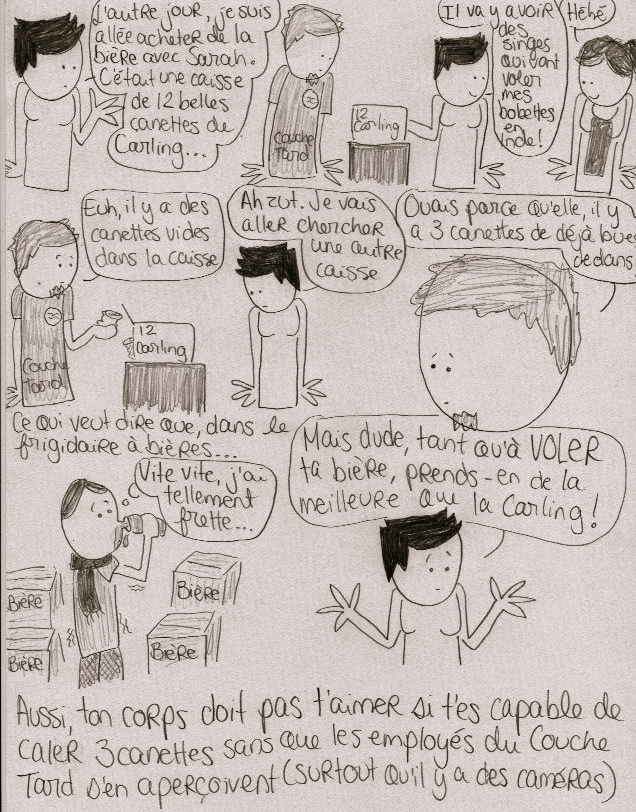 L'autre jour, je suis
allée acheter de la
bière avec Sarah.
C'était une caisse
de 12 belles
canettes de
Carling...
Couche
Tard
12
Carling
Il va y avoir
des
singes
qui vont
voler
mes
bobettes
en
Inde!
Héhé
Euh, il y a des
canettes vides
dans la caisse
Couche
Tard
12
Carling
Ah zut. Je vais
aller chercher
une autre
caisse
Ouais parce qu'elle, il y
a 3 canettes de déjà bues
dedans
Ce qui veut dire que, dans le
frigidaire à bières...
Vite vite, j'ai
tellement
frette...
Bière
Bière
Bière
Bière
Mais dude, tant qu'à VOLER
ta bière, prends-en de la
meilleure que la Carling!
Aussi, ton corps doit pas t'aimer si t'es capable de
caler 3 canettes sans que les employés du Couche
Tard s'en aperçoivent (surtout qu'il y a des caméras)